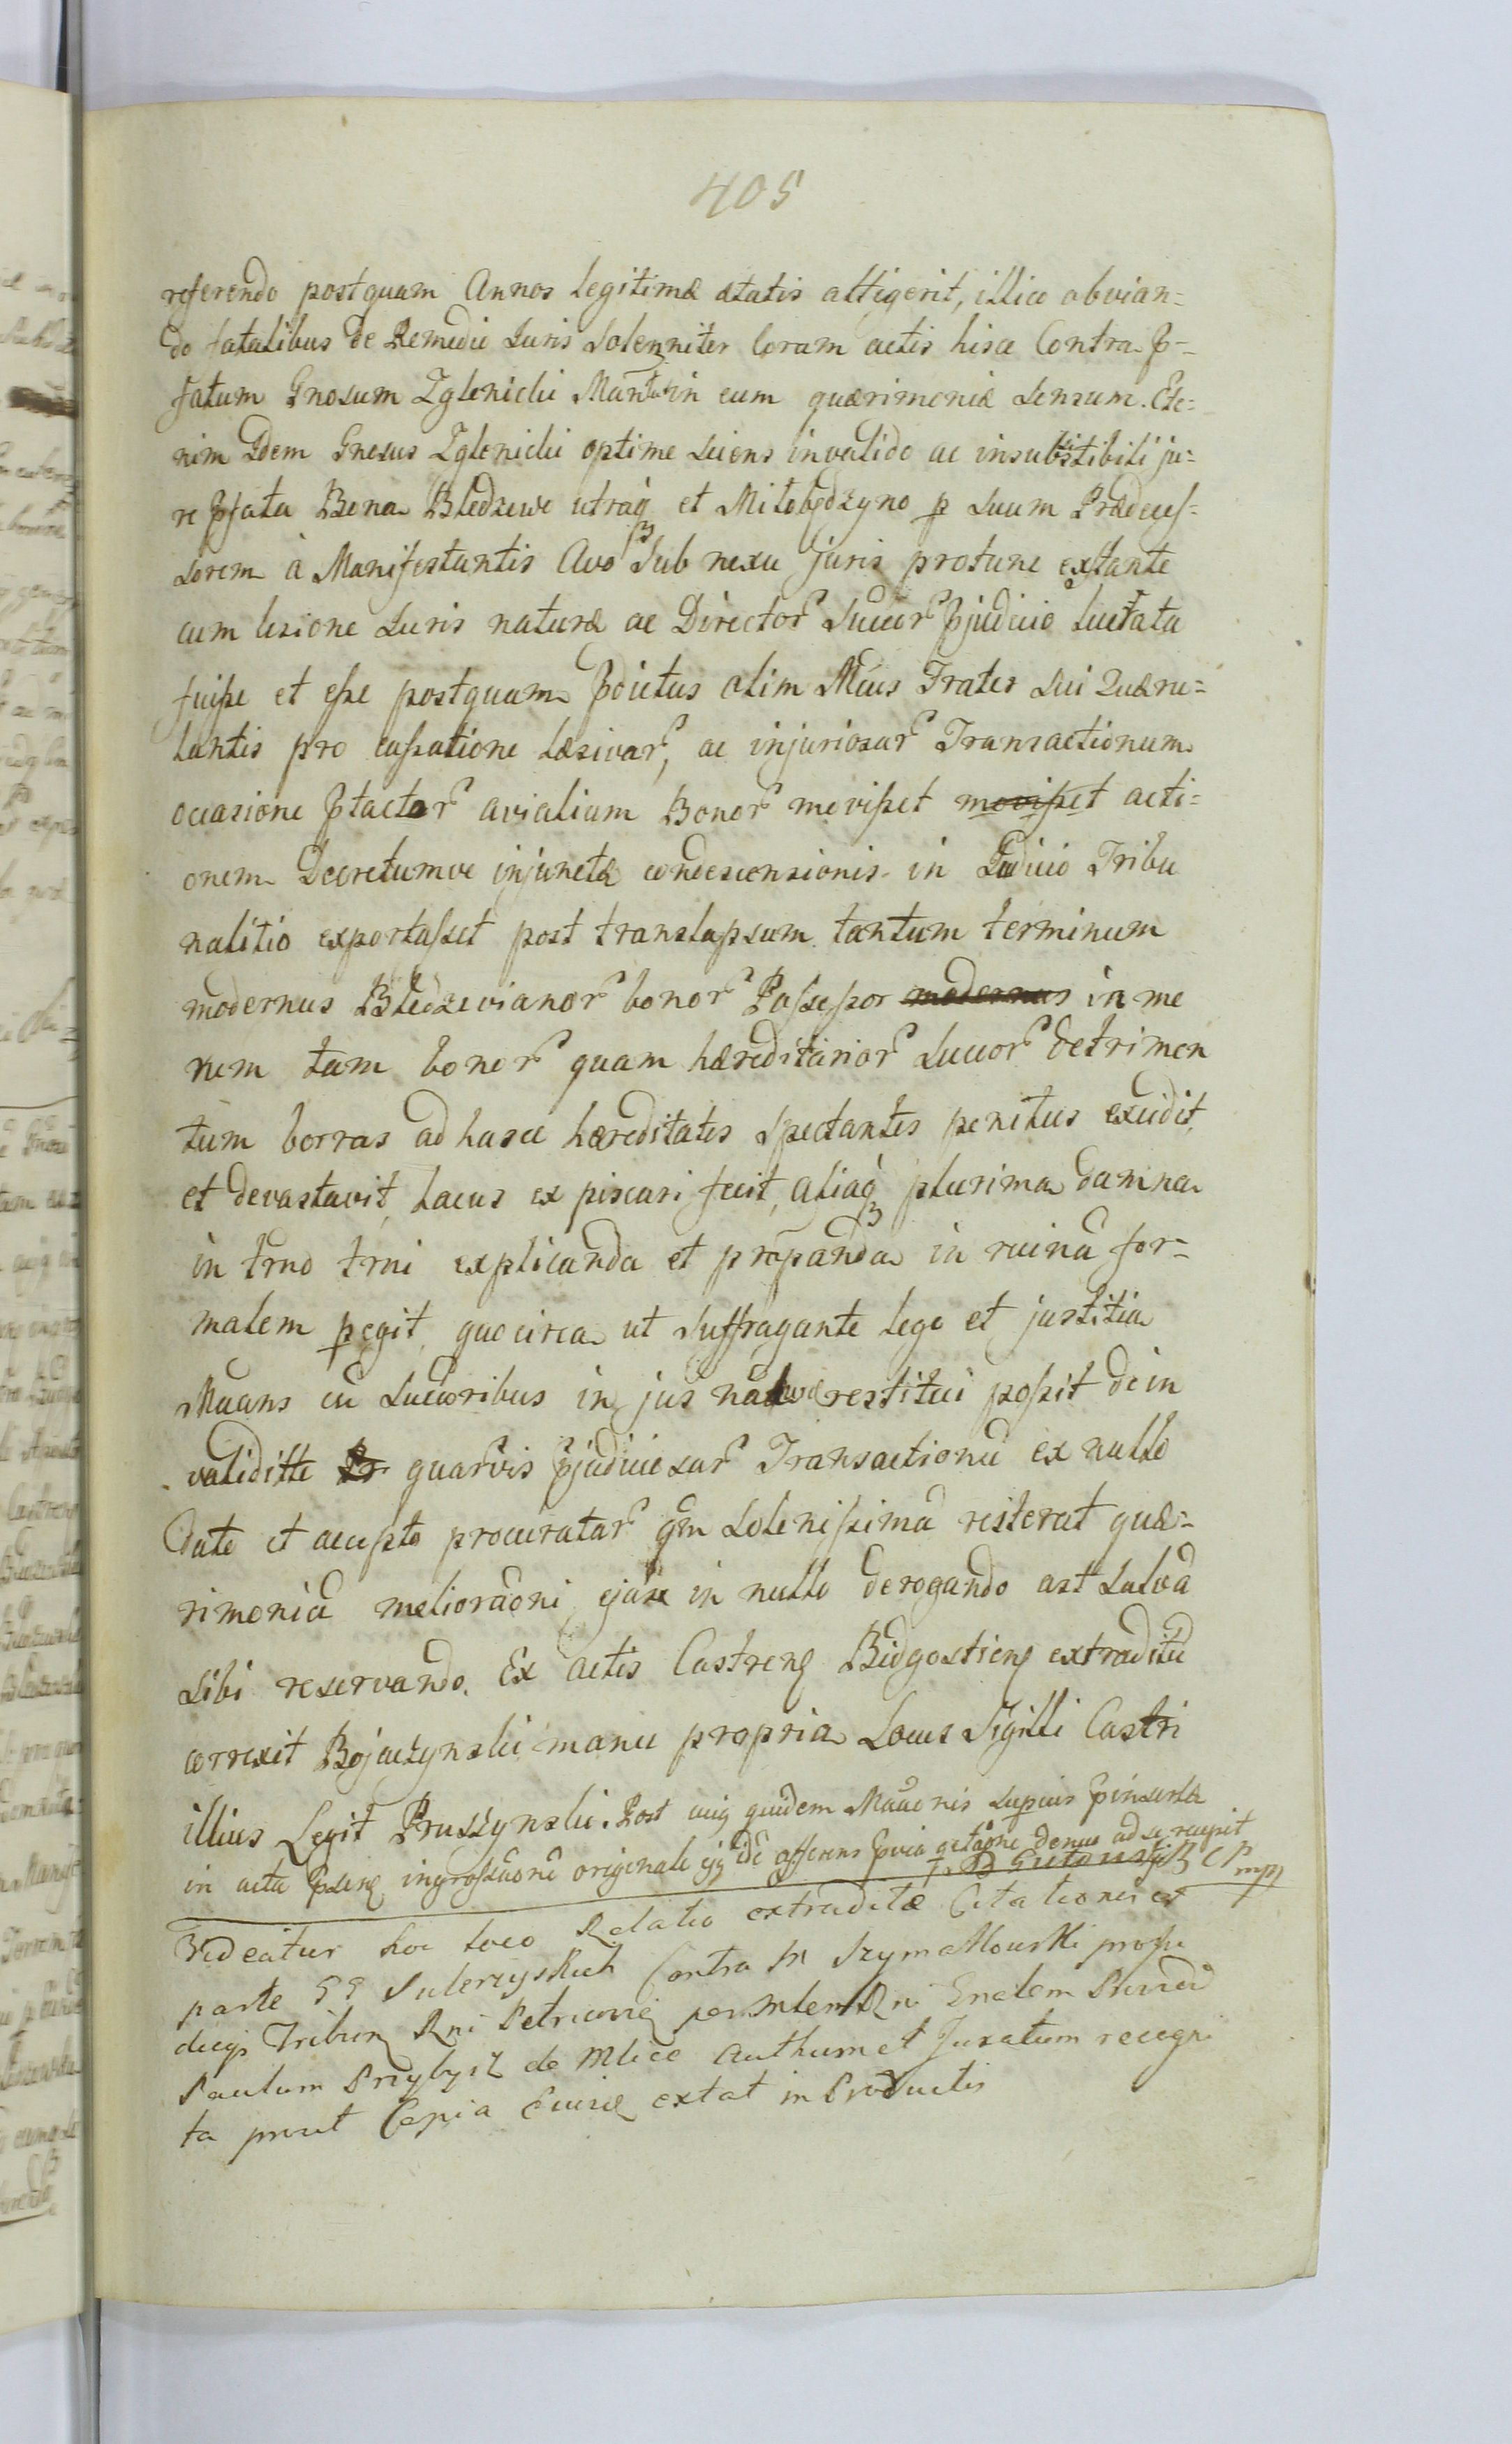 405
referendo postquam Annos Legitimæ ætatis attigerit, illico obvian=
do fatalibus de Remedie Iuris Solenniter Coram actis hisce Contra p=
fatum Gnosum Zglenicki in eum quærimoniæ Sensum. Ete=
nim Idem Gnosus Zglenicki optime Sciens invalido ac insubsistibili ju=
re pfata Bona Bledzewo utraq et Miłobędzyno p Suum Prædeces=
sorem à Manifestantis Avo Sub nexu juris protunc extante
cum lesione Iuris naturæ ac Director Succor pjudicio
fuisse et esse postquam pdictus olim Mcus Frater Sui Quæru=
lantis pro cassatione Læsivar, ac injuriosar Transactionum
occasione ptactor avialium Bonor movisset movisset acti=
onem Decretumve injunctæ condescensionis in Iudicio Tribu
nalitio exportasset post translapsum tantum terminum
modernus Bledzevianor bonor Possessor modernus in me
rum tam bonor quam hæreditarior Succor detrimen
tum borras ad hasce hæreditates Spectantes penitus excidit,
et devastavit, Lacus ex piscari fecit, aliaq plurima damna
in trno trni explicanda et propanda in ruinā for=
malem pegit, quocirca ut Suffragante Lege et justitia
Mūans cū Succoribus in jus restitui possit de in
validitte quarvis pjudiciosar Transactionū ex nullo
Dato et accepto procuratar qm Solenissimā resterat quæ=
rimoniā melioraoni ejusce in nullo derogando ast Salvā
Sibi reservando. Ex Actis Castren Bidgostien extraditū
correxit Bojaczynski manu propria Locus Sigilli Castri
illius Legit Pruszynski. Post cuig quidem Mauonis Supius insertæ
in acta psens ingrossāonē originale ejg idē offerens pvia qetāone denuo ad se recepit
Videatur hoc loco Relatio extraditæ Citationis ex
parte GG Sulerzyskich Contra M Szymakowski pro
Tribun Rni Petricovien per Mlem Rni Gnalem Provid
Paulum Przybysz de Mlice Authum et Juratum recogni
ta prout Copia extat in Productis